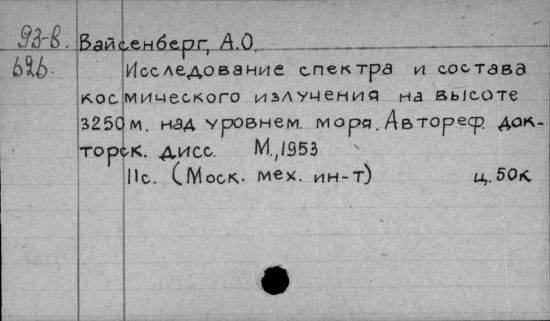 93-в. Вайсенберг, А.О.
626. Исследование спектра и состава
космического излучения на высоте
3250 м. над уровнем моря. Автореф. док-
торск. дисс. М., 1953
11с. (Моск. мех. ин-т) ц. 50к